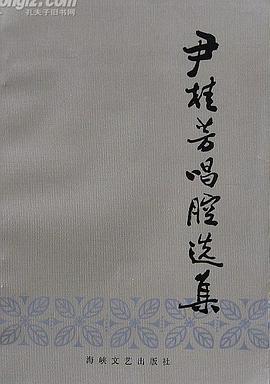 孔夫子旧书网
尹桂芳唱腔选集
海峡文艺出版社